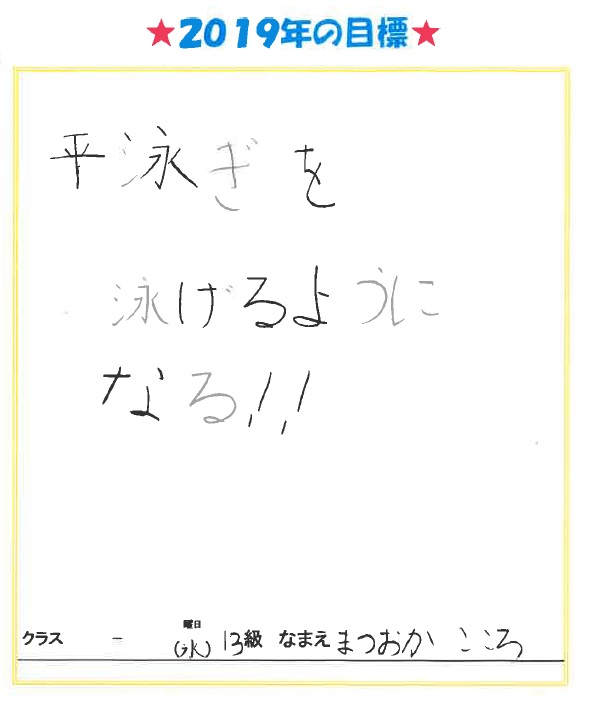 ★2019年の目標★
平泳ぎを
泳げるように
なる!!
クラス - 曜日 (水) 13級 なまえ まつおか こころ